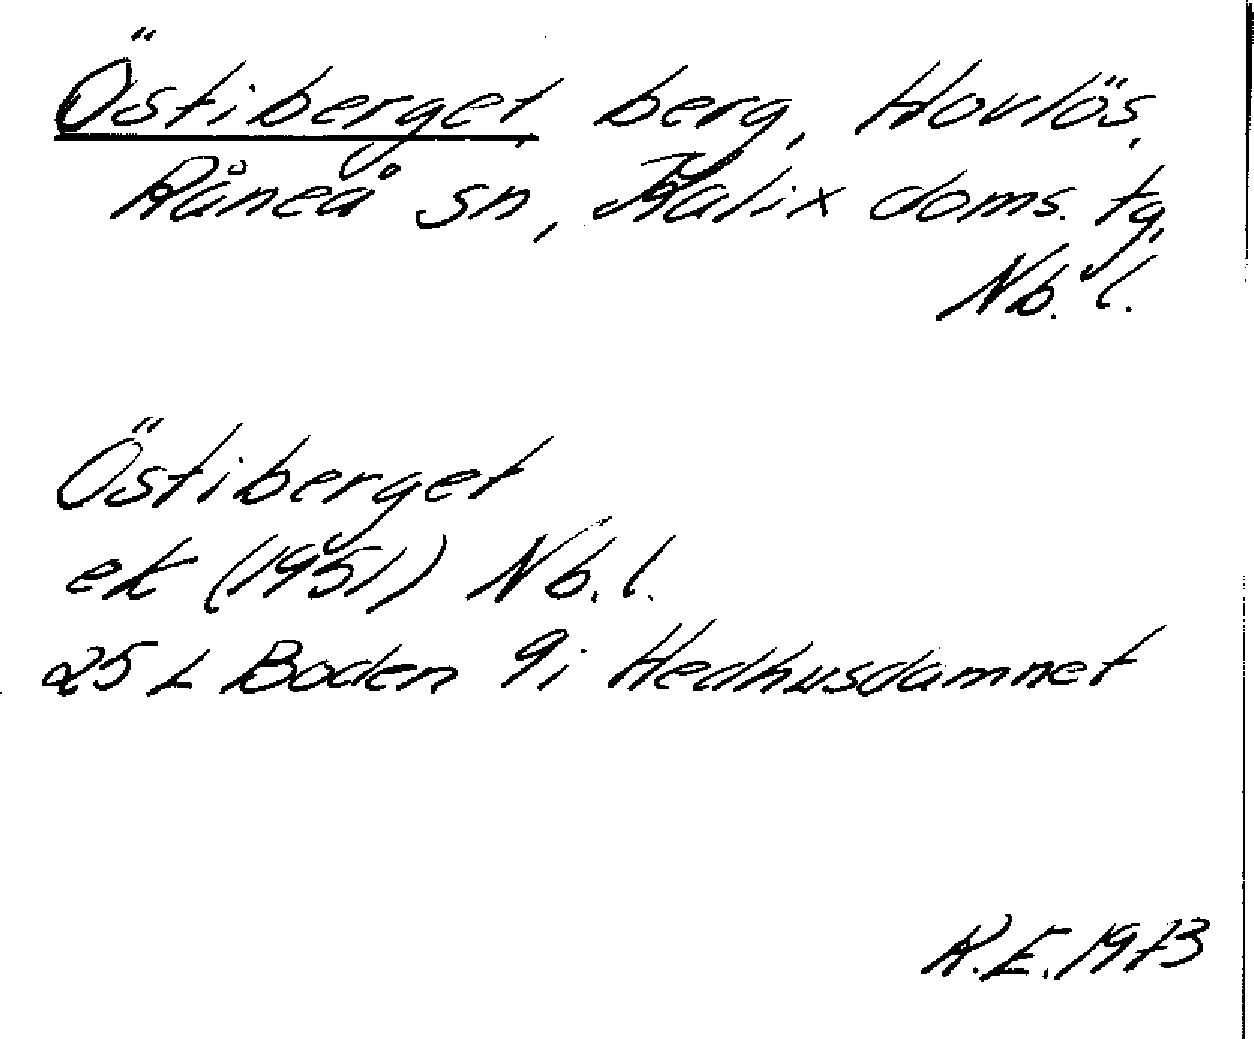 Östiberget, berg, Hovlös,
Råneå sn, Kalix doms. tg,
Nb. l.
Östiberget
ek (1951) Nb. l.
25 L Boden 9i Hedhusdamnet
K.E. 1973